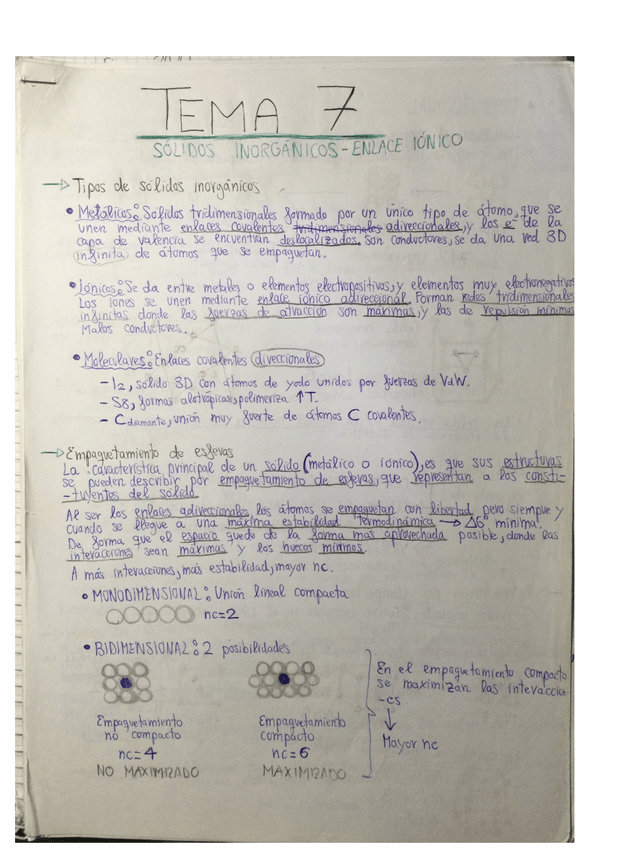 TEMA 7
SÓLIDOS INORGÁNICOS - ENLACE IÓNICO
→ Tipos de sólidos inorgánicos
• Metálicos: Sólidos tridimensionales formado por un único tipo de átomo, que se
unen mediante enlaces covalentes tridimensionales adireccionales, y los e⁻ de la
capa de valencia se encuentran deslocalizados. Son conductores, se da una red 3D
infinita de átomos que se empaquetan.
• Iónicos: Se da entre metales o elementos electropositivos, y elementos muy electronegativos
Los iones se unen mediante enlace iónico adireccional. Forman redes tridimensionales
infinitas donde las fuerzas de atracción son máximas, y las de repulsión mínimas
Malos conductores.
• Moleculares: Enlaces covalentes direccionales
- I2, sólido 3D con átomos de yodo unidos por fuerzas de VdW.
- S8, formas alotrópicas, polimeriza ↑T.
- Cdiamante, unión muy fuerte de átomos C covalentes.
→ Empaquetamiento de esferas
La característica principal de un sólido (metálico o iónico), es que sus estructuras
se pueden describir por empaquetamiento de esferas, que representan a los consti-
-tuyentes del sólido
Al ser los enlaces adireccionales los átomos se empaquetan con libertad pero siempre y
cuando se llegue a una máxima estabilidad termodinámica → ΔG° mínima.
De forma que el espacio quede de la forma mas aprovechada posible, donde las
interacciones sean máximas y los huecos mínimos.
A más interacciones, más estabilidad, mayor nc.
• MONODIMENSIONAL: Unión lineal compacta
nc=2
• BIDIMENSIONAL: 2 posibilidades
Empaquetamiento
no compacto
nc=4
NO MAXIMIZADO
Empaquetamiento
compacto
nc=6
MAXIMIZADO
En el empaquetamiento compacto
se maximizan las interaccion
-es
↓
Mayor nc